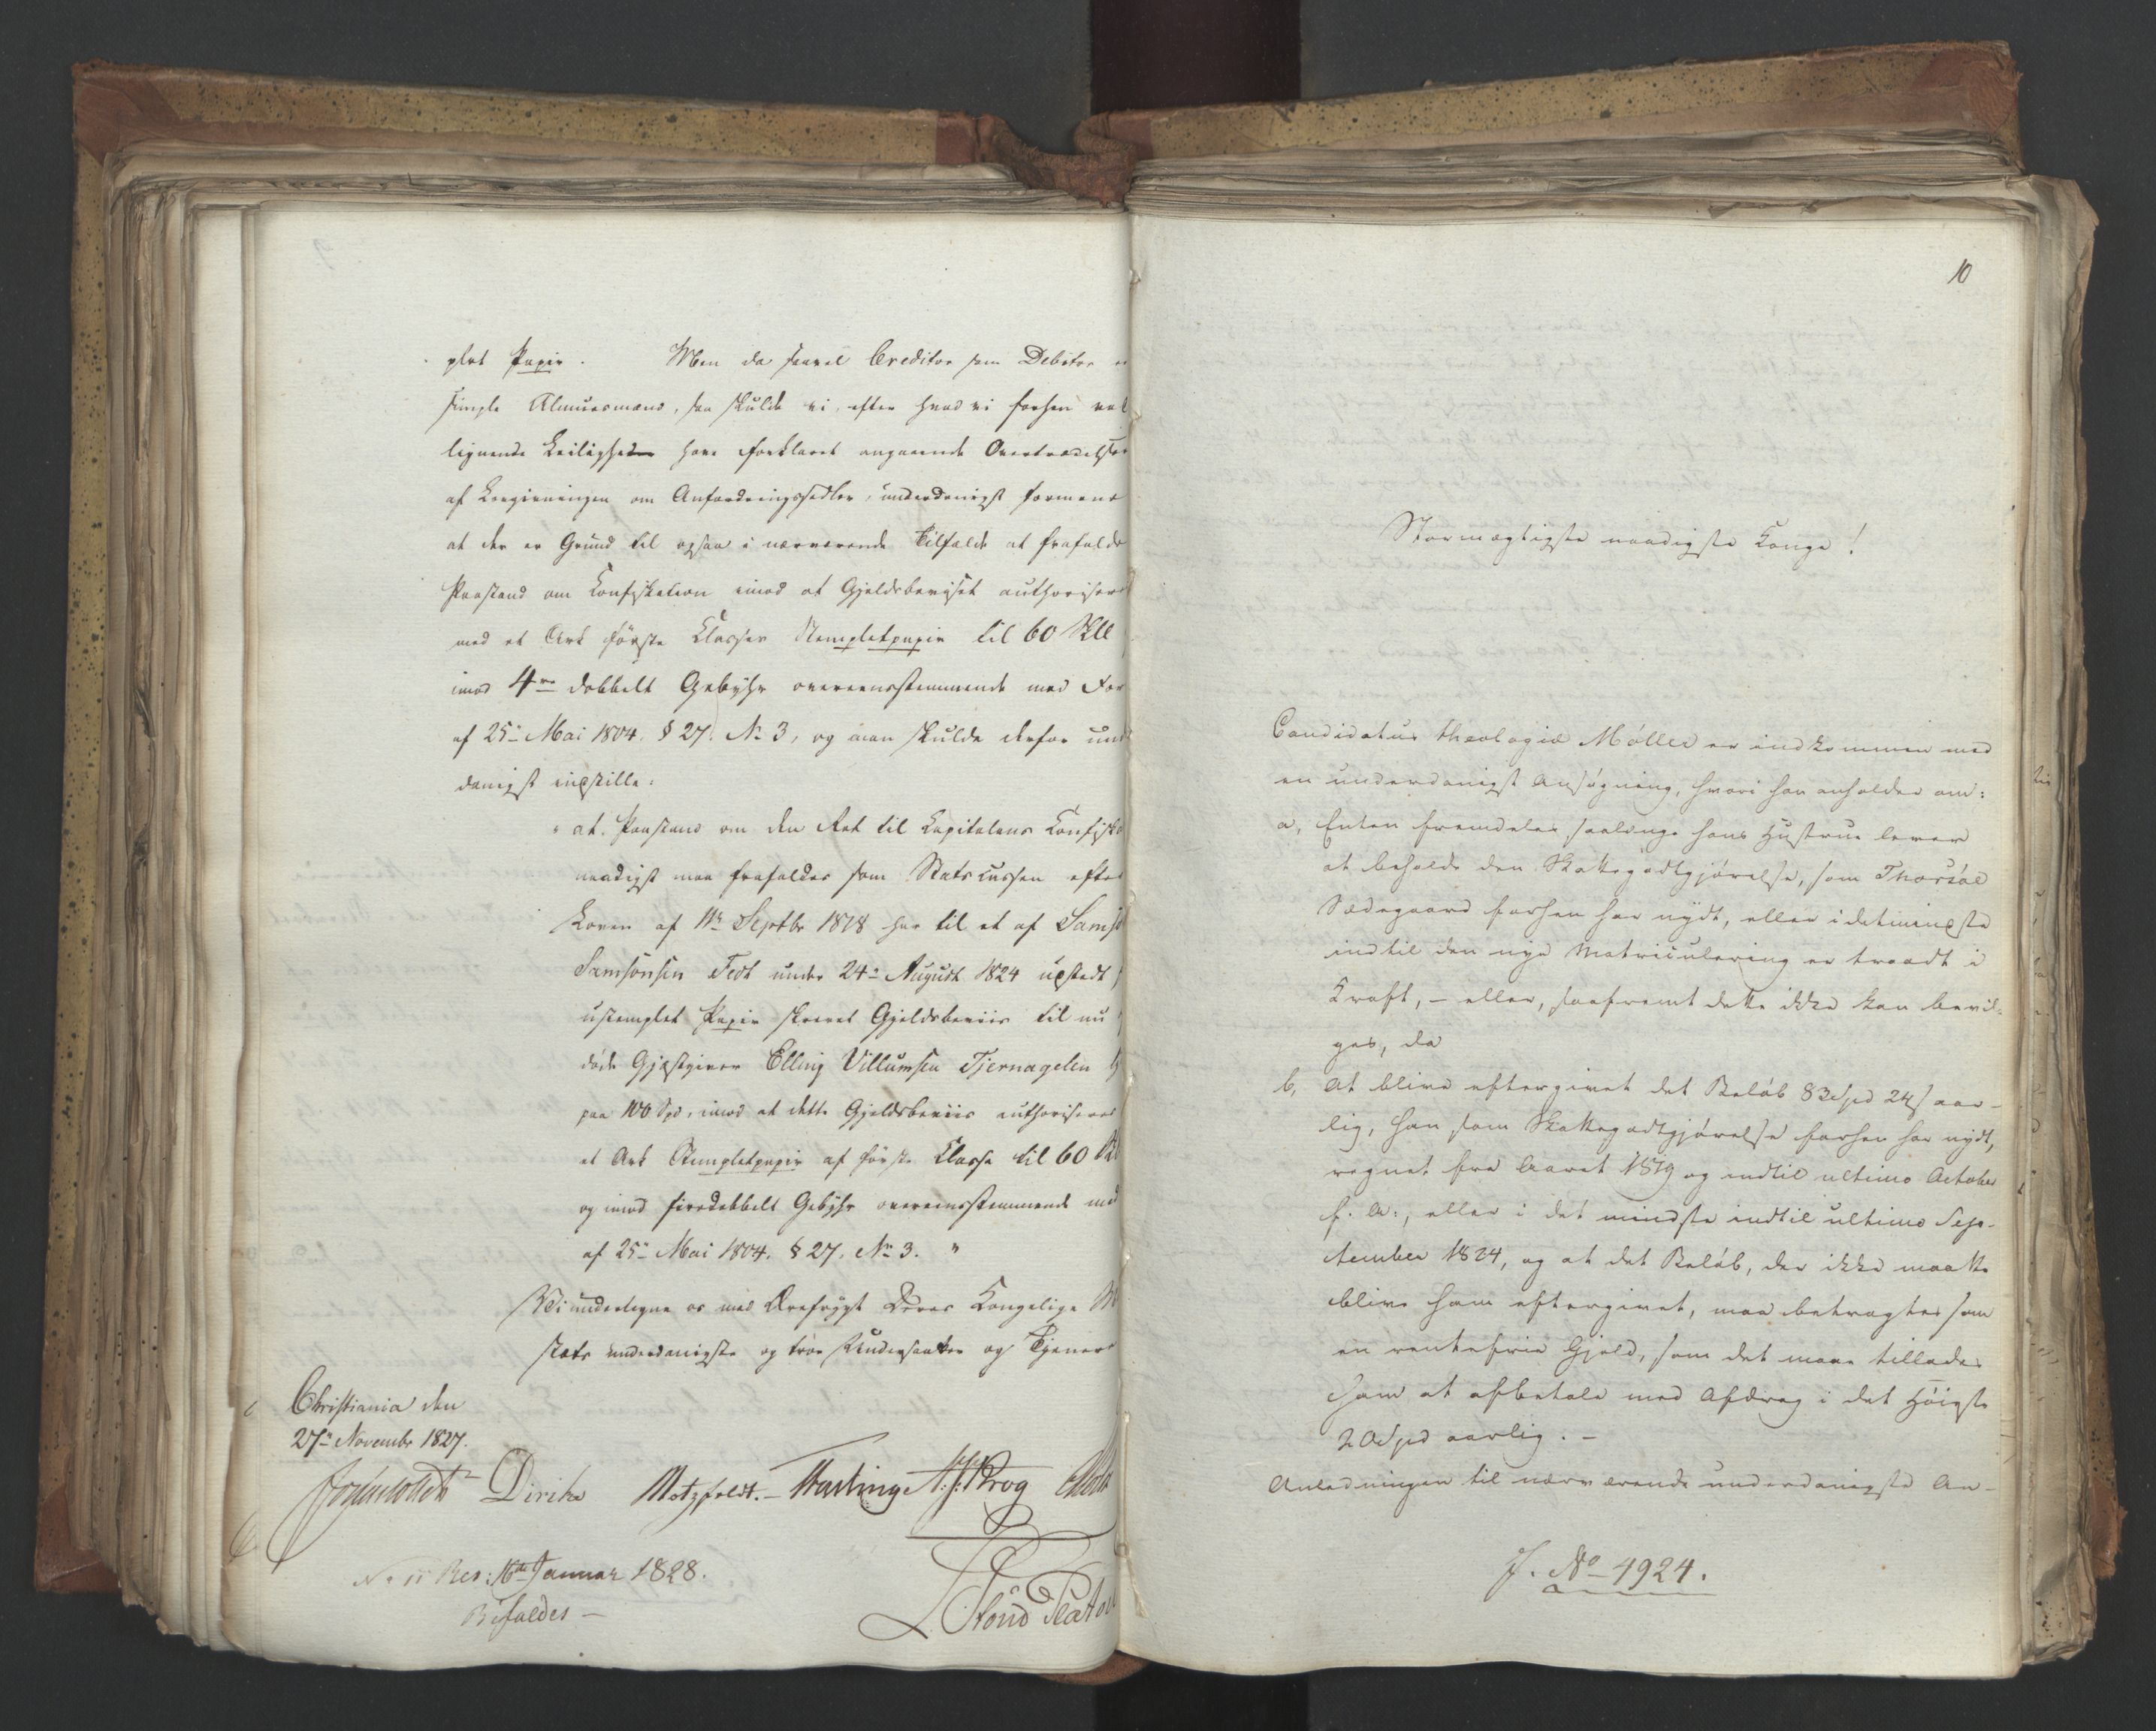 plet Papir. Men da saavel Creditor som Debitor
simple Almuesmænd, saa skulde vi, efter hvad vi forhen ved
lignende Leiligheder have forklaret angaaende Overtrædelser
af Lovgivningen om Anfordringssedler, underdanigst formene
at der er Grund til ogsaa i nærværende Tilfælde at frafalde
Paastand om Confiskation imod at Gjeldsbeviset authoriseres
med et Ark første Classes Stempletpapir til 60 Skll
imod 4re dobbelt Gebyhr overeensstemmende med For
af 25de Mai 1804. § 27. No 3, og man skulde derfor un
danigst indstille:
"at Paastand om den Ret til Capitalens Confiska
naadigst maa frafaldes som Statscassen efter
Loven af 11te Septbr 1818 har til et af Sams
Samsonsen Fedt under 24de August 1824 udstedt
ustemplet Papir skrevet Gjeldsbeviis til nu
døde Gjæstgiver Elling Villumsen Tjernagelen
paa 100 Spd, imod at dette Gjeldsbeviis authoriseres
et Ark Stempletpapir af første Classe til 60
og imod firedobbelt Gebyhr overeensstemmende med
af 25de Mai 1804. § 27. No 3."
Vi undertegne os med Ærefrygt Deres Kongelige M
stæts underdanigste og troe Undersaatter og Tjenere
Christiania den
27de Novembr 1827.
Diriks Motzfeldt. Fasting A. J. Krog
No 11 Res: 16de Januar 1828.
Bifaldes —
Platou
10
Stormægtigste naadigste Konge!
Candidatus theologiæ Møller er indkommen med
en underdanigst Ansøgning, hvori han anholder om:
a, Enten fremdeles saalænge hans Hustrue lever
at beholde den Skattegodtgjørelse, som Thorsøe
Sædegaard forhen har nydt, eller idetmindste
indtil den nye Matriculering er traadt i
Kraft, – eller, saafremt dette ikke kan bevil-
ges, da
b, At blive eftergivet det Beløb 83 Spd 24 s aar-
lig, han som Skattegodtgjørelse forhen har nydt,
regnet fra Aaret 1819 og indtil ultimo October
f. A., eller i det mindste indtil ultimo Sep-
tember 1824, og at det Beløb, der ikke maatte
blive ham eftergivet, maa betragtes som
en rentefrie Gjeld, som det maae tillades
ham at afbetale med Afdrag i det Høieste
20 Spd aarlig. –
Anledningen til nærværende underdanigste An-
J. No 4924.